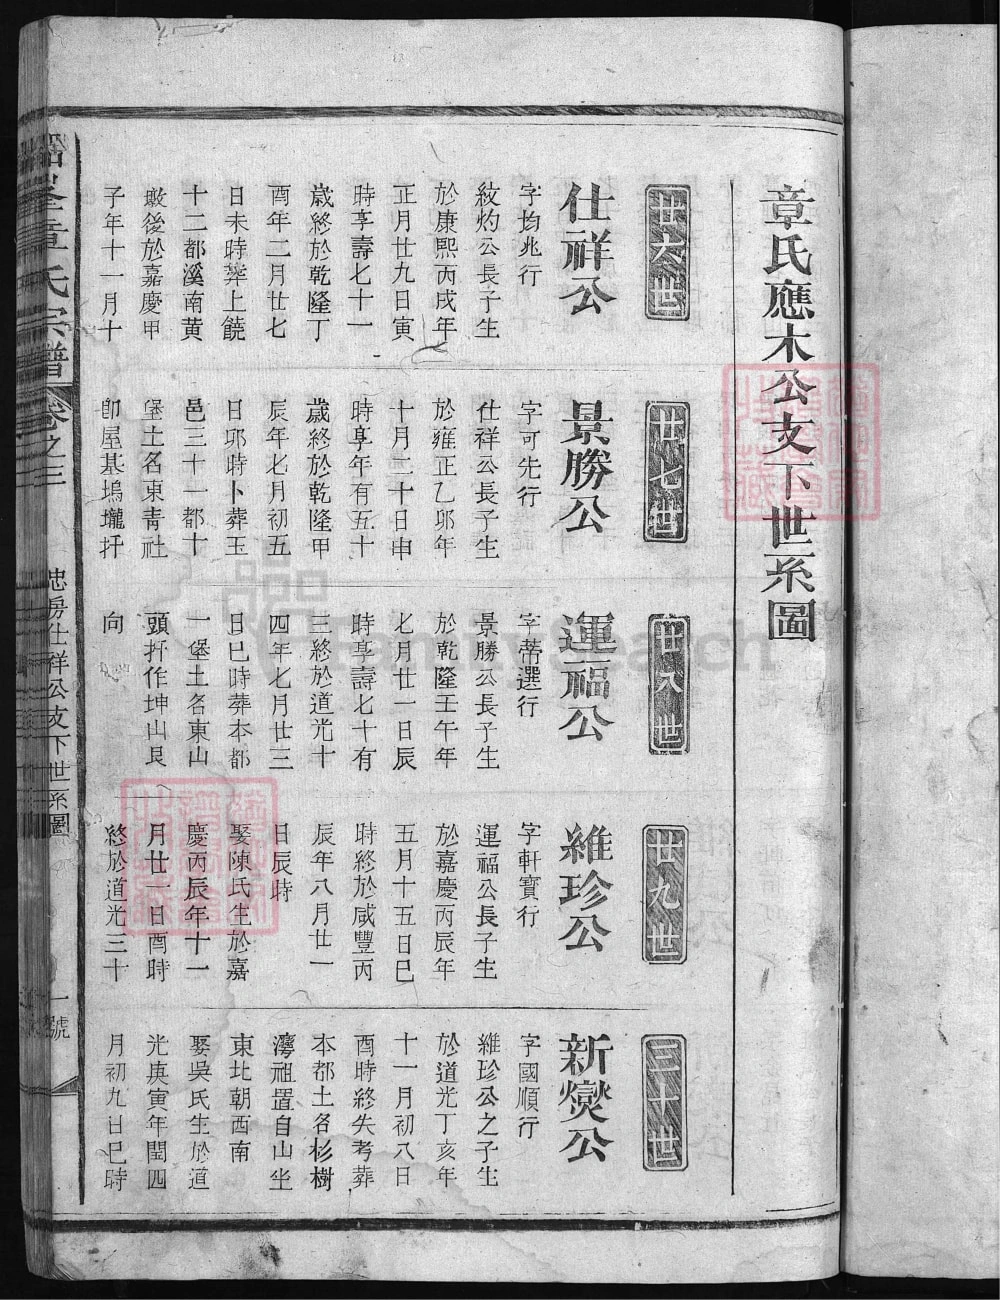 章氏應木公支下世系圖
廿六世
仕祥公
字均兆行
紋灼公長子生
於康熙丙戌年
正月廿九日寅
時享壽七十一
歲終於乾隆丁
酉年二月廿七
日未時葬上饒
十二都溪南黄
墩後於嘉慶甲
子年十一月十
廿七世
景勝公
字可先行
仕祥公長子生
於雍正乙卯年
十月二十日申
時享年有五十
歲終於乾隆甲
辰年七月初五
日卯時卜葬玉
邑三十一都十
堡土名東青社
卽屋基塢壠扦
廿八世
運福公
字蒂選行
景勝公長子生
於乾隆壬午年
七月廿一日辰
時享壽七十有
三終於道光十
四年七月廿三
日巳時葬本都
一堡土名東山
頭扦作坤山艮
向
廿九世
維珍公
字軒寶行
運福公長子生
於嘉慶丙辰年
五月十五日巳
時終於咸豐丙
辰年八月廿一
日辰時
娶陳氏生於嘉
慶丙辰年十一
月廿一日酉時
終於道光三十
三十世
新爕公
字國順行
維珍公之子生
於道光丁亥年
十一月初八日
酉時終失考葬
本都土名杉樹
灣祖置自山坐
東北朝西南
娶吳氏生於道
光庚寅年閏四
月初九日巳時
章氏宗譜
卷之三
忠房仕祥公支下世系圖
一號
FamilySearch